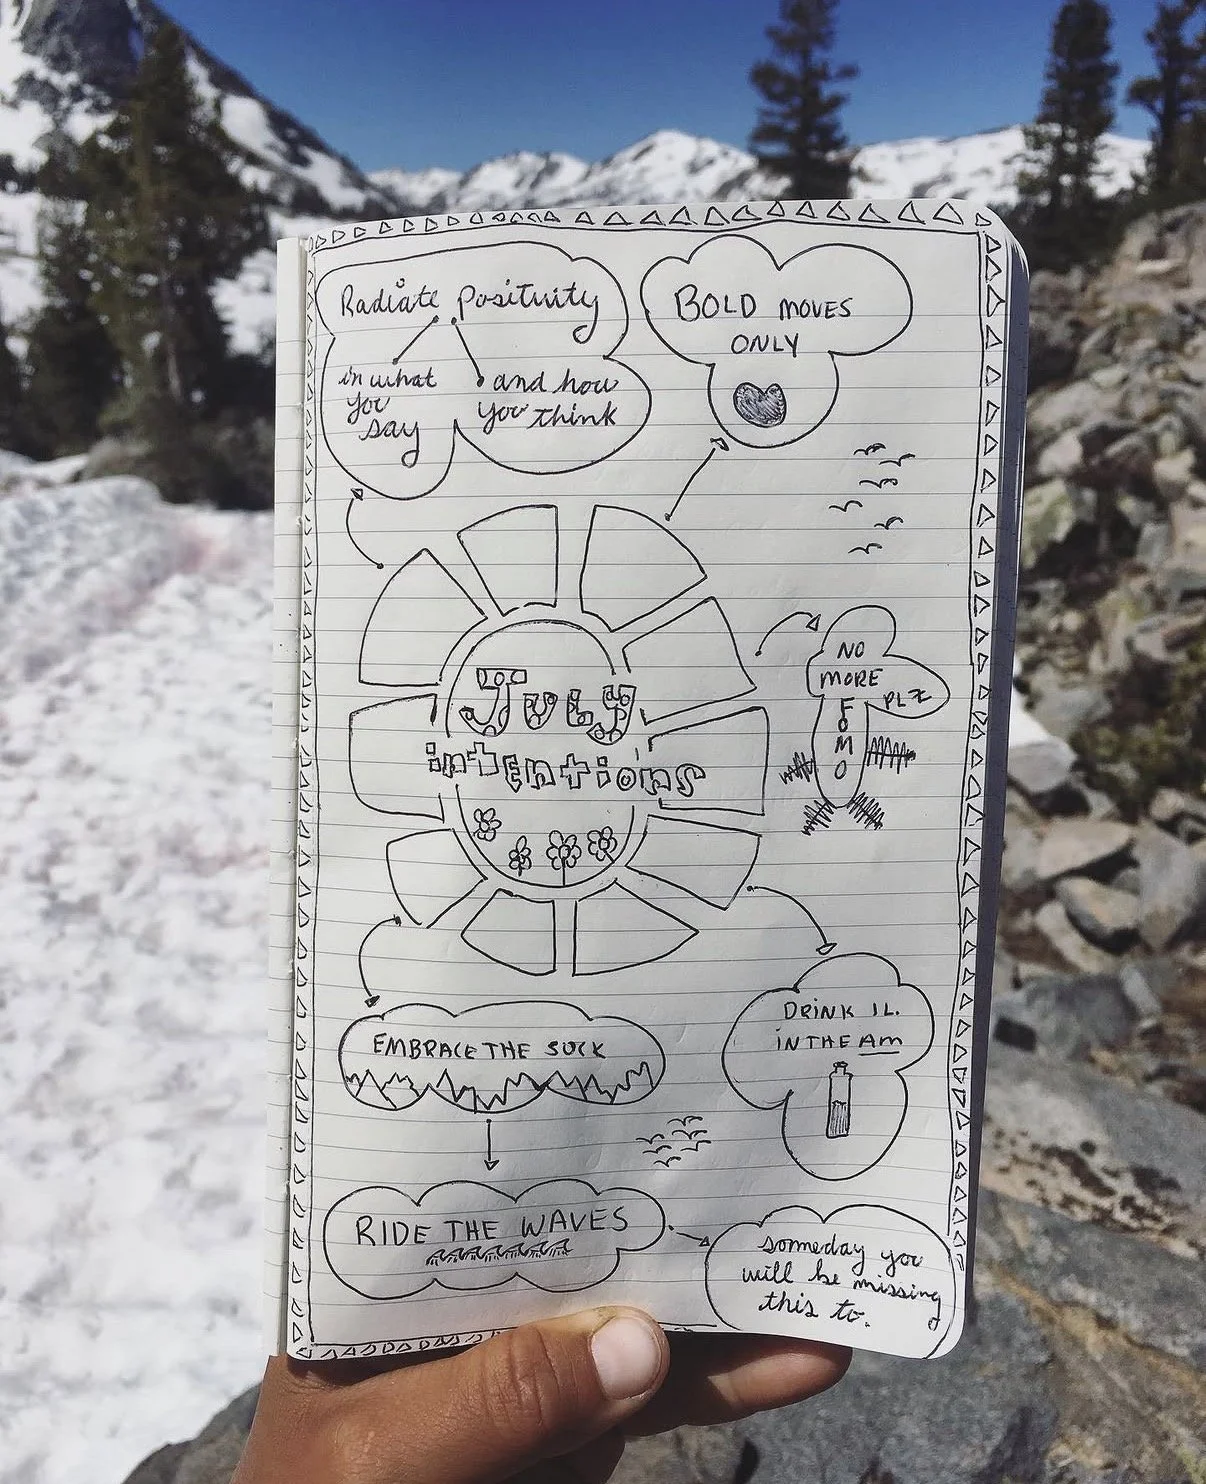 Radiate positivity
in what
you
say
and how
you think
BOLD MOVES
ONLY
JULY
intEntions
NO
MORE
PLZ
F
O
M
O
EMBRACE THE SUCK
DRINK 1L.
IN THE AM
RIDE THE WAVES
someday you
will be missing
this to.